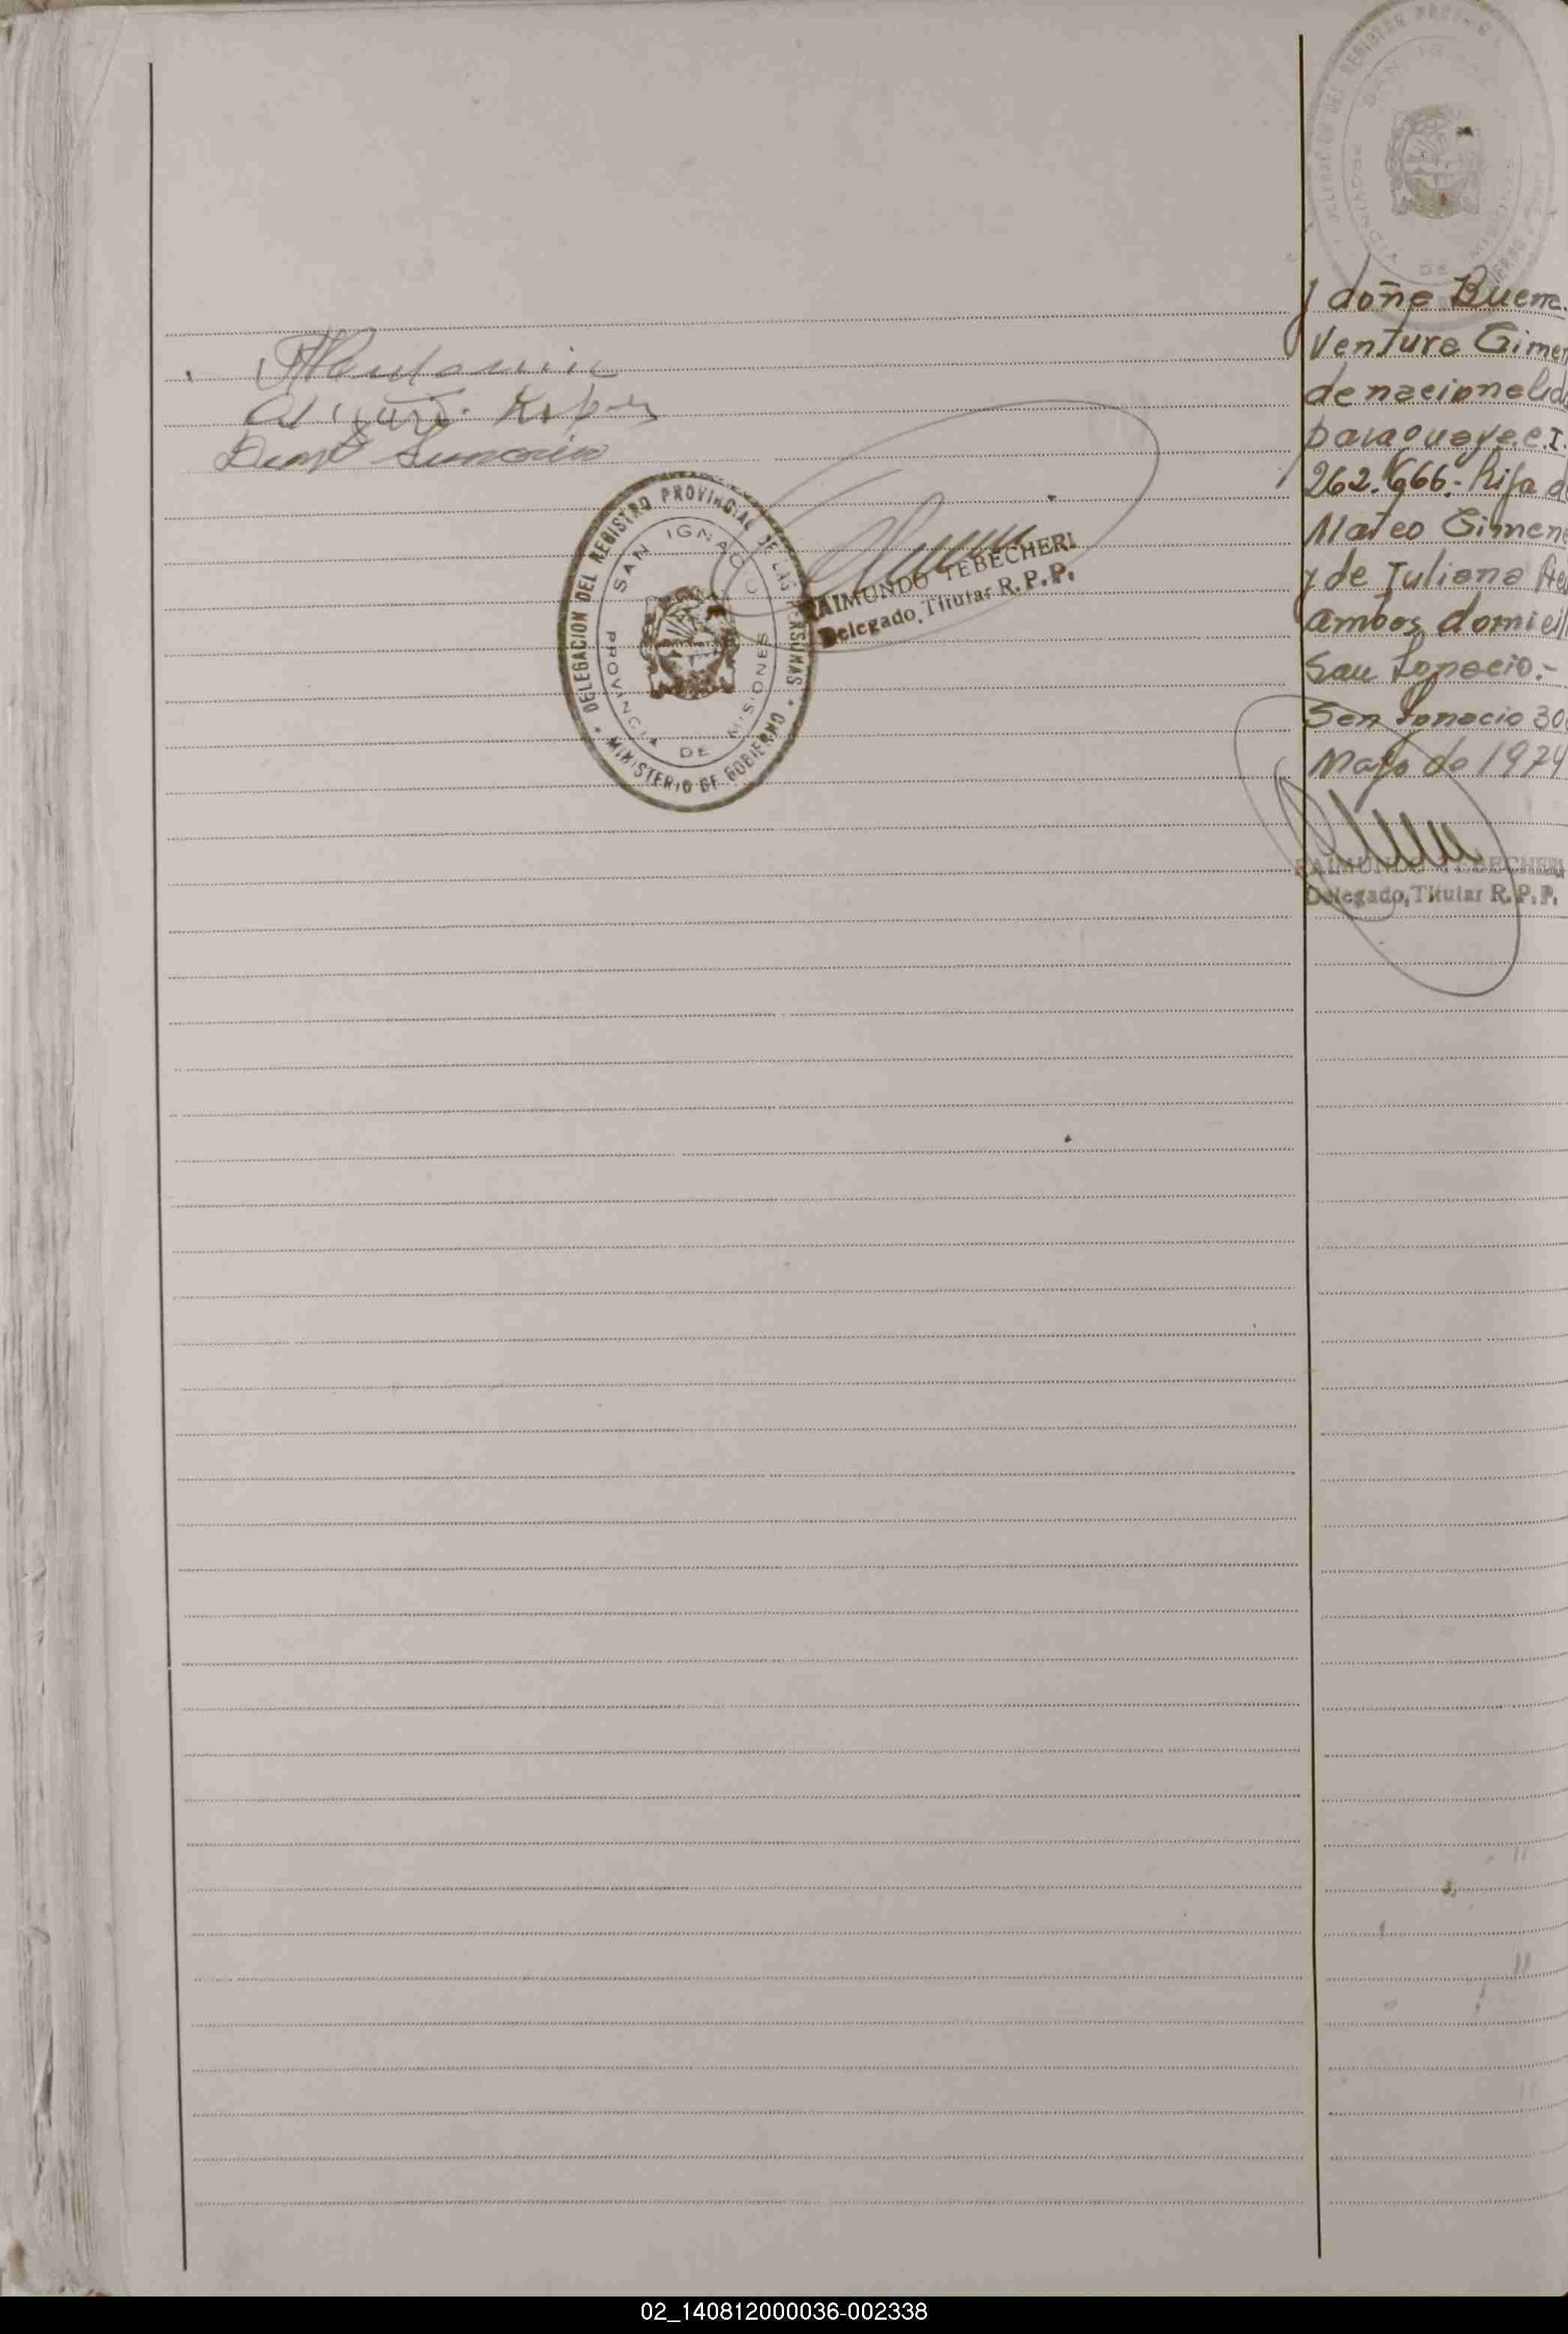 DELEGACION DEL REGISTRO PROVINCIAL DE LAS PERSONAS
SAN IGNACIO
PROVINCIA DE MISIONES
MINISTERIO DE GOBIERNO
RAIMUNDO TEBECHERI
Delegado Titular R.P.P.
DELEGACION DEL REGISTRO PROVINC
SAN IG
PROVINCIA DE MISIONES
doña Buena
Ventura Gimen
de nacionalida
paraguaya, C.I.
262.666.- hija d
Mateo Gimene
y de Juliana
ambos domicil
San Ignacio.-
San Ignacio 30
Mayo de 1974
RAIMUNDO TEBECHERI
Delegado, Titular R.P.P.
02_140812000036-002338